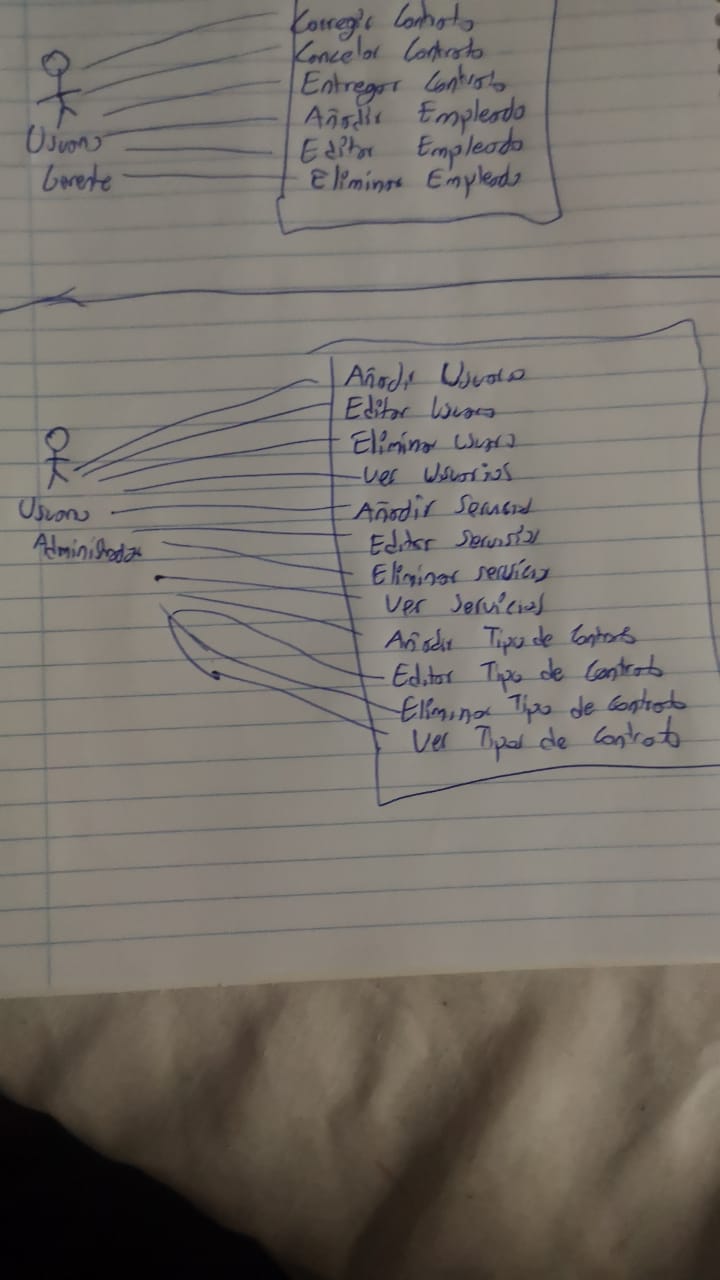 Corregir Contrato
Cancelar Contrato
Entregar Contrato
Añadir Empleado
Editar Empleado
Eliminar Empleado
Usuario
Gerente
Añadir Usuario
Editar Usuario
Eliminar Usuario
Ver Usuarios
Añadir Servicios
Editar Servicios
Eliminar servicios
Ver Servicios
Añadir Tipo de Contrato
Editar Tipo de Contrato
Eliminar Tipo de Contrato
Ver Tipos de Contrato
Usuario
Administrador